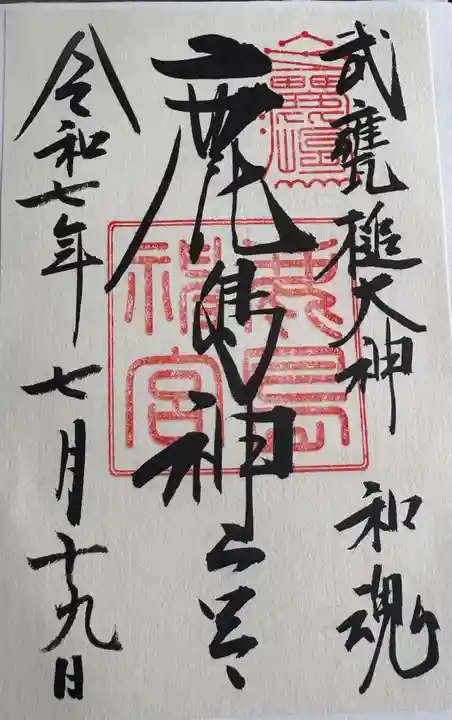 武甕槌大神　和魂
鹿島神宮
鹿島
神宮
令和七年　七月十九日